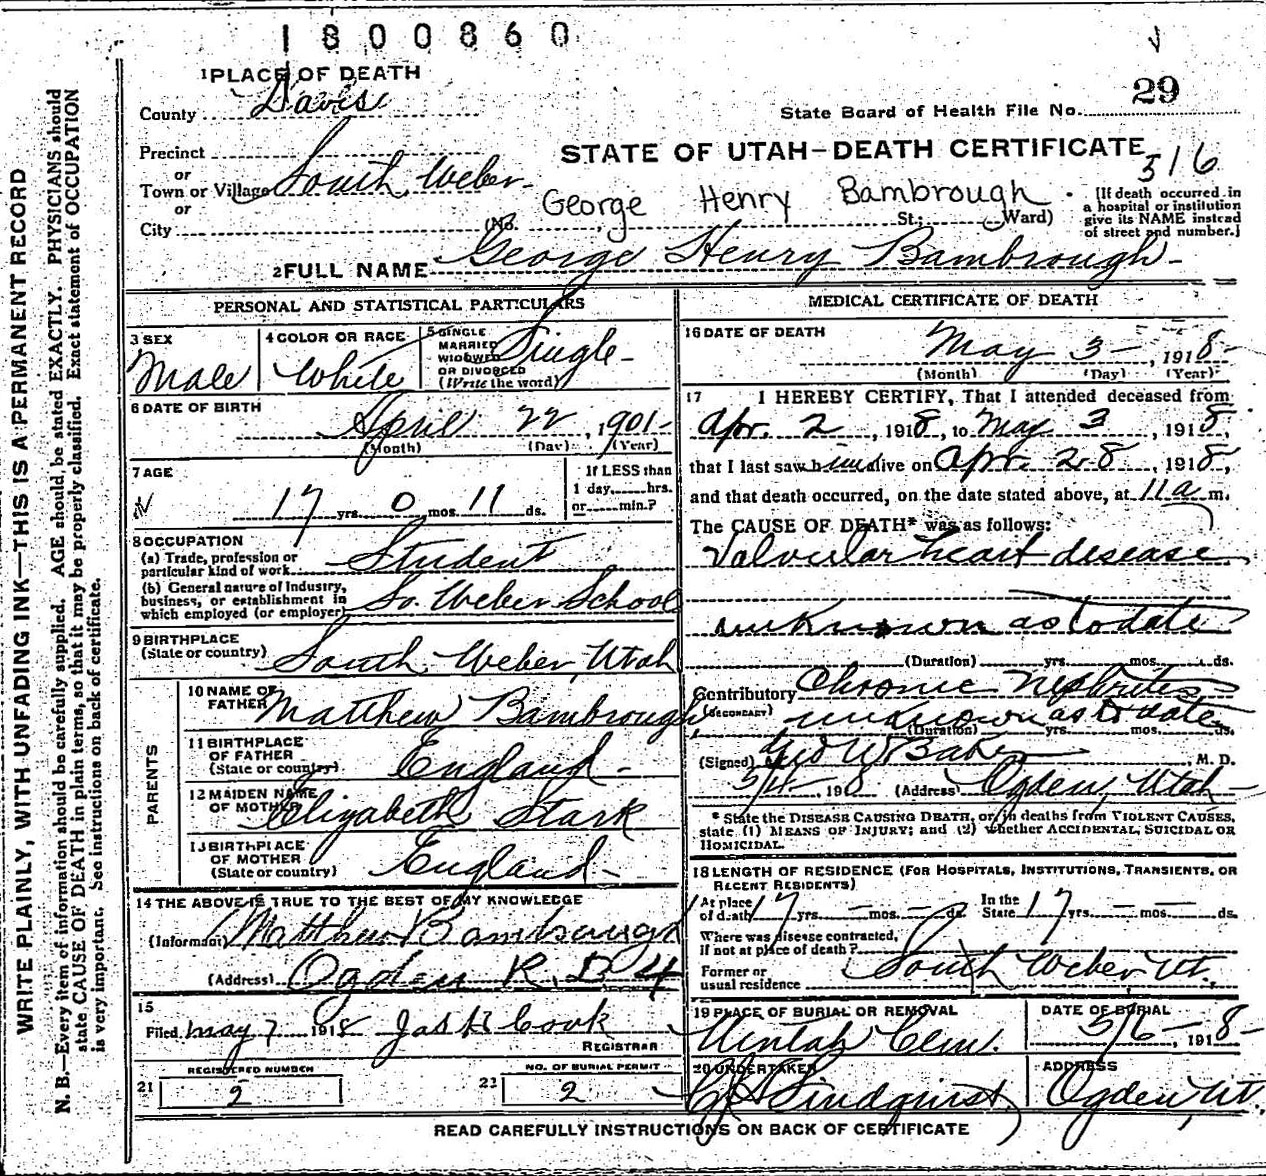 1800860
1 PLACE OF DEATH
County Davis
State Board of Health File No. 29
Precinct
or
Town or Village South Weber
or
City
STATE OF UTAH-DEATH CERTIFICATE
516
George Henry Bambrough
(No. St.; Ward)
[If death occurred in
a hospital or institution
give its NAME instead
of street and number.]
2 FULL NAME George Henry Bambrough
PERSONAL AND STATISTICAL PARTICULARS
3 SEX Male
4 COLOR OR RACE White
5 SINGLE
MARRIED
WIDOWED
OR DIVORCED
(Write the word) Single
6 DATE OF BIRTH
April 22, 1901
(Month) (Day) (Year)
7 AGE
17 yrs. 0 mos. 11 ds.
If LESS than
1 day, hrs.
or min.?
8 OCCUPATION
(a) Trade, profession or
particular kind of work Student
(b) General nature of industry,
business, or establishment in
which employed (or employer) So. Weber School
9 BIRTHPLACE
(State or country) South Weber, Utah
PARENTS
10 NAME OF
FATHER Matthew Bambrough
11 BIRTHPLACE
OF FATHER
(State or country) England
12 MAIDEN NAME
OF MOTHER Elizabeth Stark
13 BIRTHPLACE
OF MOTHER
(State or country) England
14 THE ABOVE IS TRUE TO THE BEST OF MY KNOWLEDGE
(Informant) Matthew Bambrough
(Address) Ogden R.D. 4
15
Filed May 7 1918 Jas H Cook
REGISTRAR
REGISTERED NUMBER
21 2
NO. OF BURIAL PERMIT
23 2
MEDICAL CERTIFICATE OF DEATH
16 DATE OF DEATH
May 3, 1918
(Month) (Day) (Year)
17 I HEREBY CERTIFY, That I attended deceased from
Apr. 2, 1918, to May 3, 1918,
that I last saw him alive on Apr. 28, 1918,
and that death occurred, on the date stated above, at 11 a m.
The CAUSE OF DEATH* was as follows:
Valvular heart disease
unknown as to date
(Duration) yrs. mos. ds.
Contributory Chronic Nephritis
(SECONDARY) unknown as to date
(Duration) yrs. mos. ds.
(Signed) Geo W Baker M. D.
5/4 1918 (Address) Ogden, Utah
* State the DISEASE CAUSING DEATH, or, in deaths from VIOLENT CAUSES,
state (1) MEANS OF INJURY; and (2) whether ACCIDENTAL, SUICIDAL OR
HOMICIDAL.
18 LENGTH OF RESIDENCE (FOR HOSPITALS, INSTITUTIONS, TRANSIENTS, OR
RECENT RESIDENTS)
At place
of death 17 yrs. — mos. — ds.
In the
State 17 yrs. — mos. ds.
Where was disease contracted,
if not at place of death?
Former or
usual residence South Weber, Ut.
19 PLACE OF BURIAL OR REMOVAL
Uintah Cem.
DATE OF BURIAL
5/6, 1918
20 UNDERTAKER
Lindquist
ADDRESS
Ogden, Ut.
READ CAREFULLY INSTRUCTIONS ON BACK OF CERTIFICATE
WRITE PLAINLY, WITH UNFADING INK—THIS IS A PERMANENT RECORD
N. B.—Every item of information should be carefully supplied. AGE should be stated EXACTLY. PHYSICIANS should
state CAUSE OF DEATH in plain terms, so that it may be properly classified. Exact statement of OCCUPATION
is very important. See instructions on back of certificate.